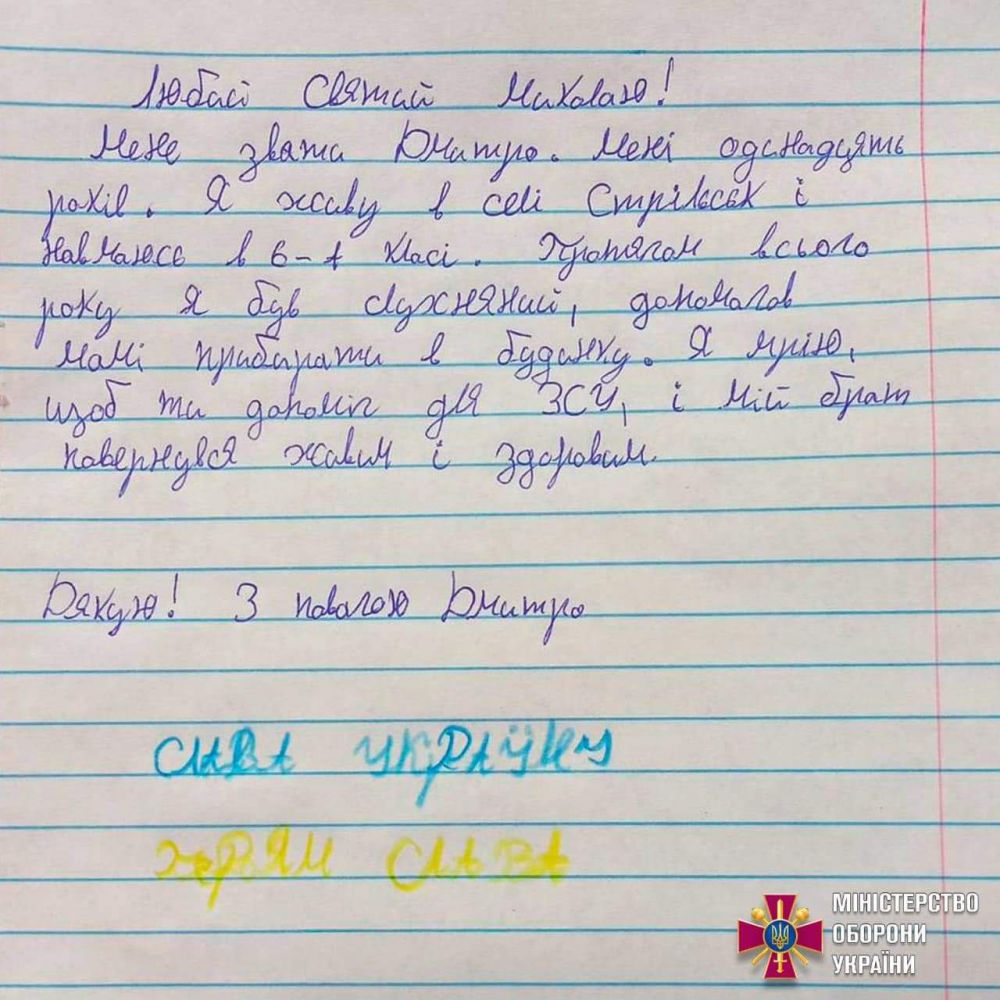 Любий Святий Миколаю!
Мене звати Дмитро. Мені одинадцять
років. Я живу в селі Стрільськ і
навчаюсь в 6-А класі. Протягом всього
року я був слухняний, допомагав
мамі прибирати в будинку. Я мрію,
щоб ти допоміг для ЗСУ, і мій брат
повернувся живим і здоровим.
Дякую! З повагою Дмитро
СЛАВА УКРАЇНИ
ГЕРЯМ СЛАВА
МІНІСТЕРСТВО
ОБОРОНИ
УКРАЇНИ